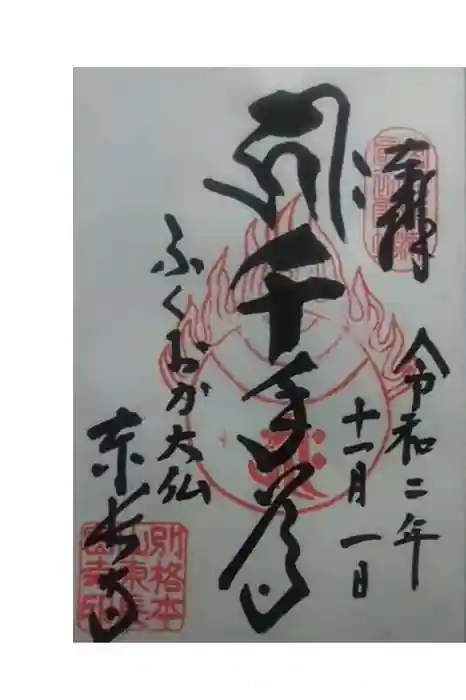 奉拝
令和二年
十一月一日
千手尊
ふくおか大仏
東長寺
別格本
山東長
密寺印